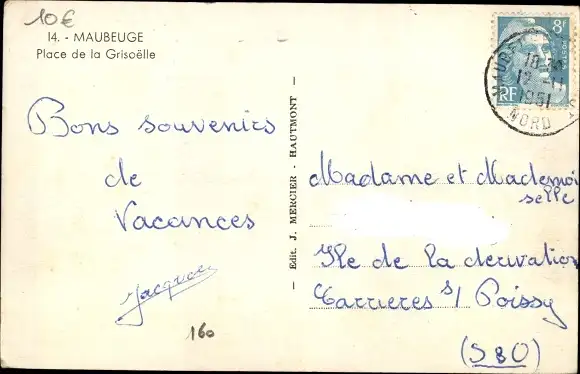 10€
14. - MAUBEUGE
Place de la Grisoëlle
Bons souvenirs
de
Vacances
Jacques
160
— Edit. J. MERCIER - HAUTMONT —
8F
RF
18
12 - 11
1951
NORD
Madame et Mademoi
selle
Ile de la derivation
Carrieres s/ Poissy
(S&O)